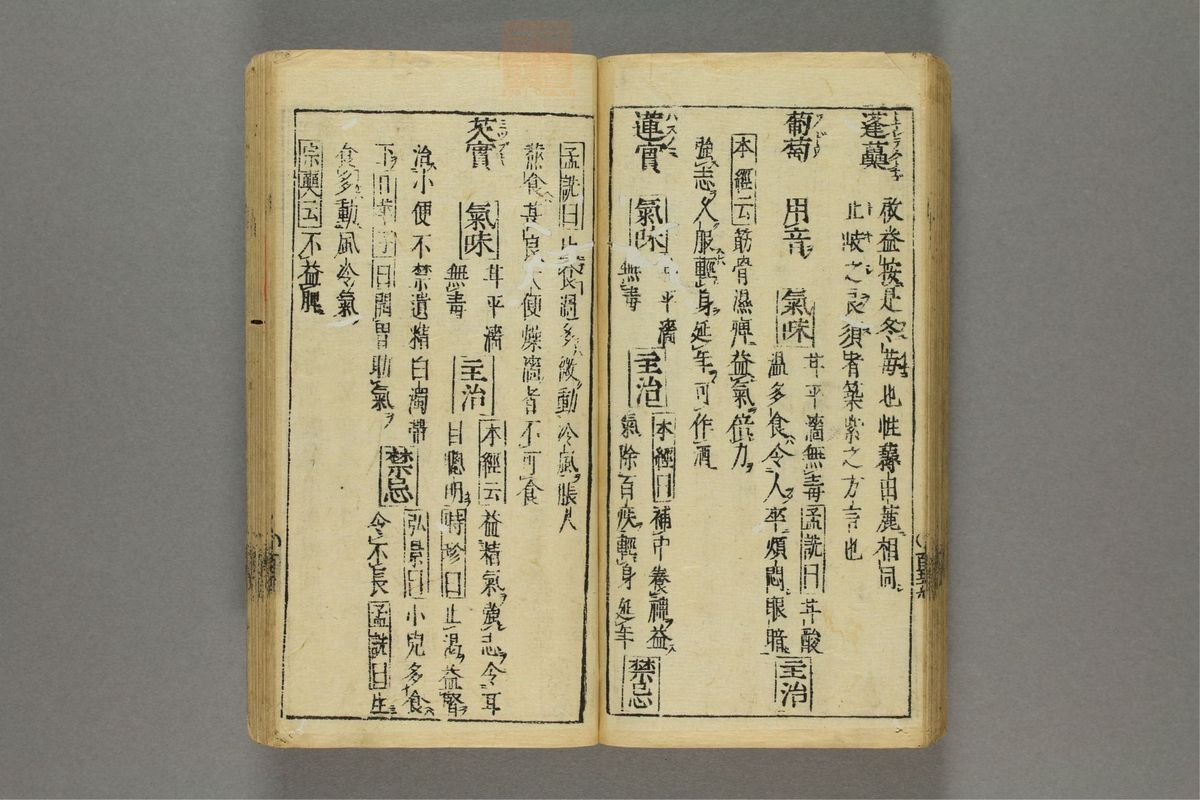 蓬蘽
啟益按是冬苺也性藭由蔍相同
止岐之哀須者築紫之方言也
葡萄 用音 氣味 甘平濇無毒孟詵曰甘酸
温多食令人卒煩悶眼暗 主治
本經云筋骨濕痺益氣倍力
強志人服輕身延年可作酒
蓮實 氣味 甘平濇
無毒 主治 本經曰補中養神益
氣除百疾輕身延年 禁忌
孟詵曰生食過多微動冷氣脹人
蒸食甚良大便燥濇者不可食
芡實 氣味 甘平濇
無毒 主治 本經云益精氣強志令耳
目聰明時珍曰止渴益腎
治小便不禁遺精白濁帶
下日華子曰開胃助氣 禁忌 弘景曰小兒多食
令不長孟詵曰生
食多動風冷氣
宗奭云不益脾